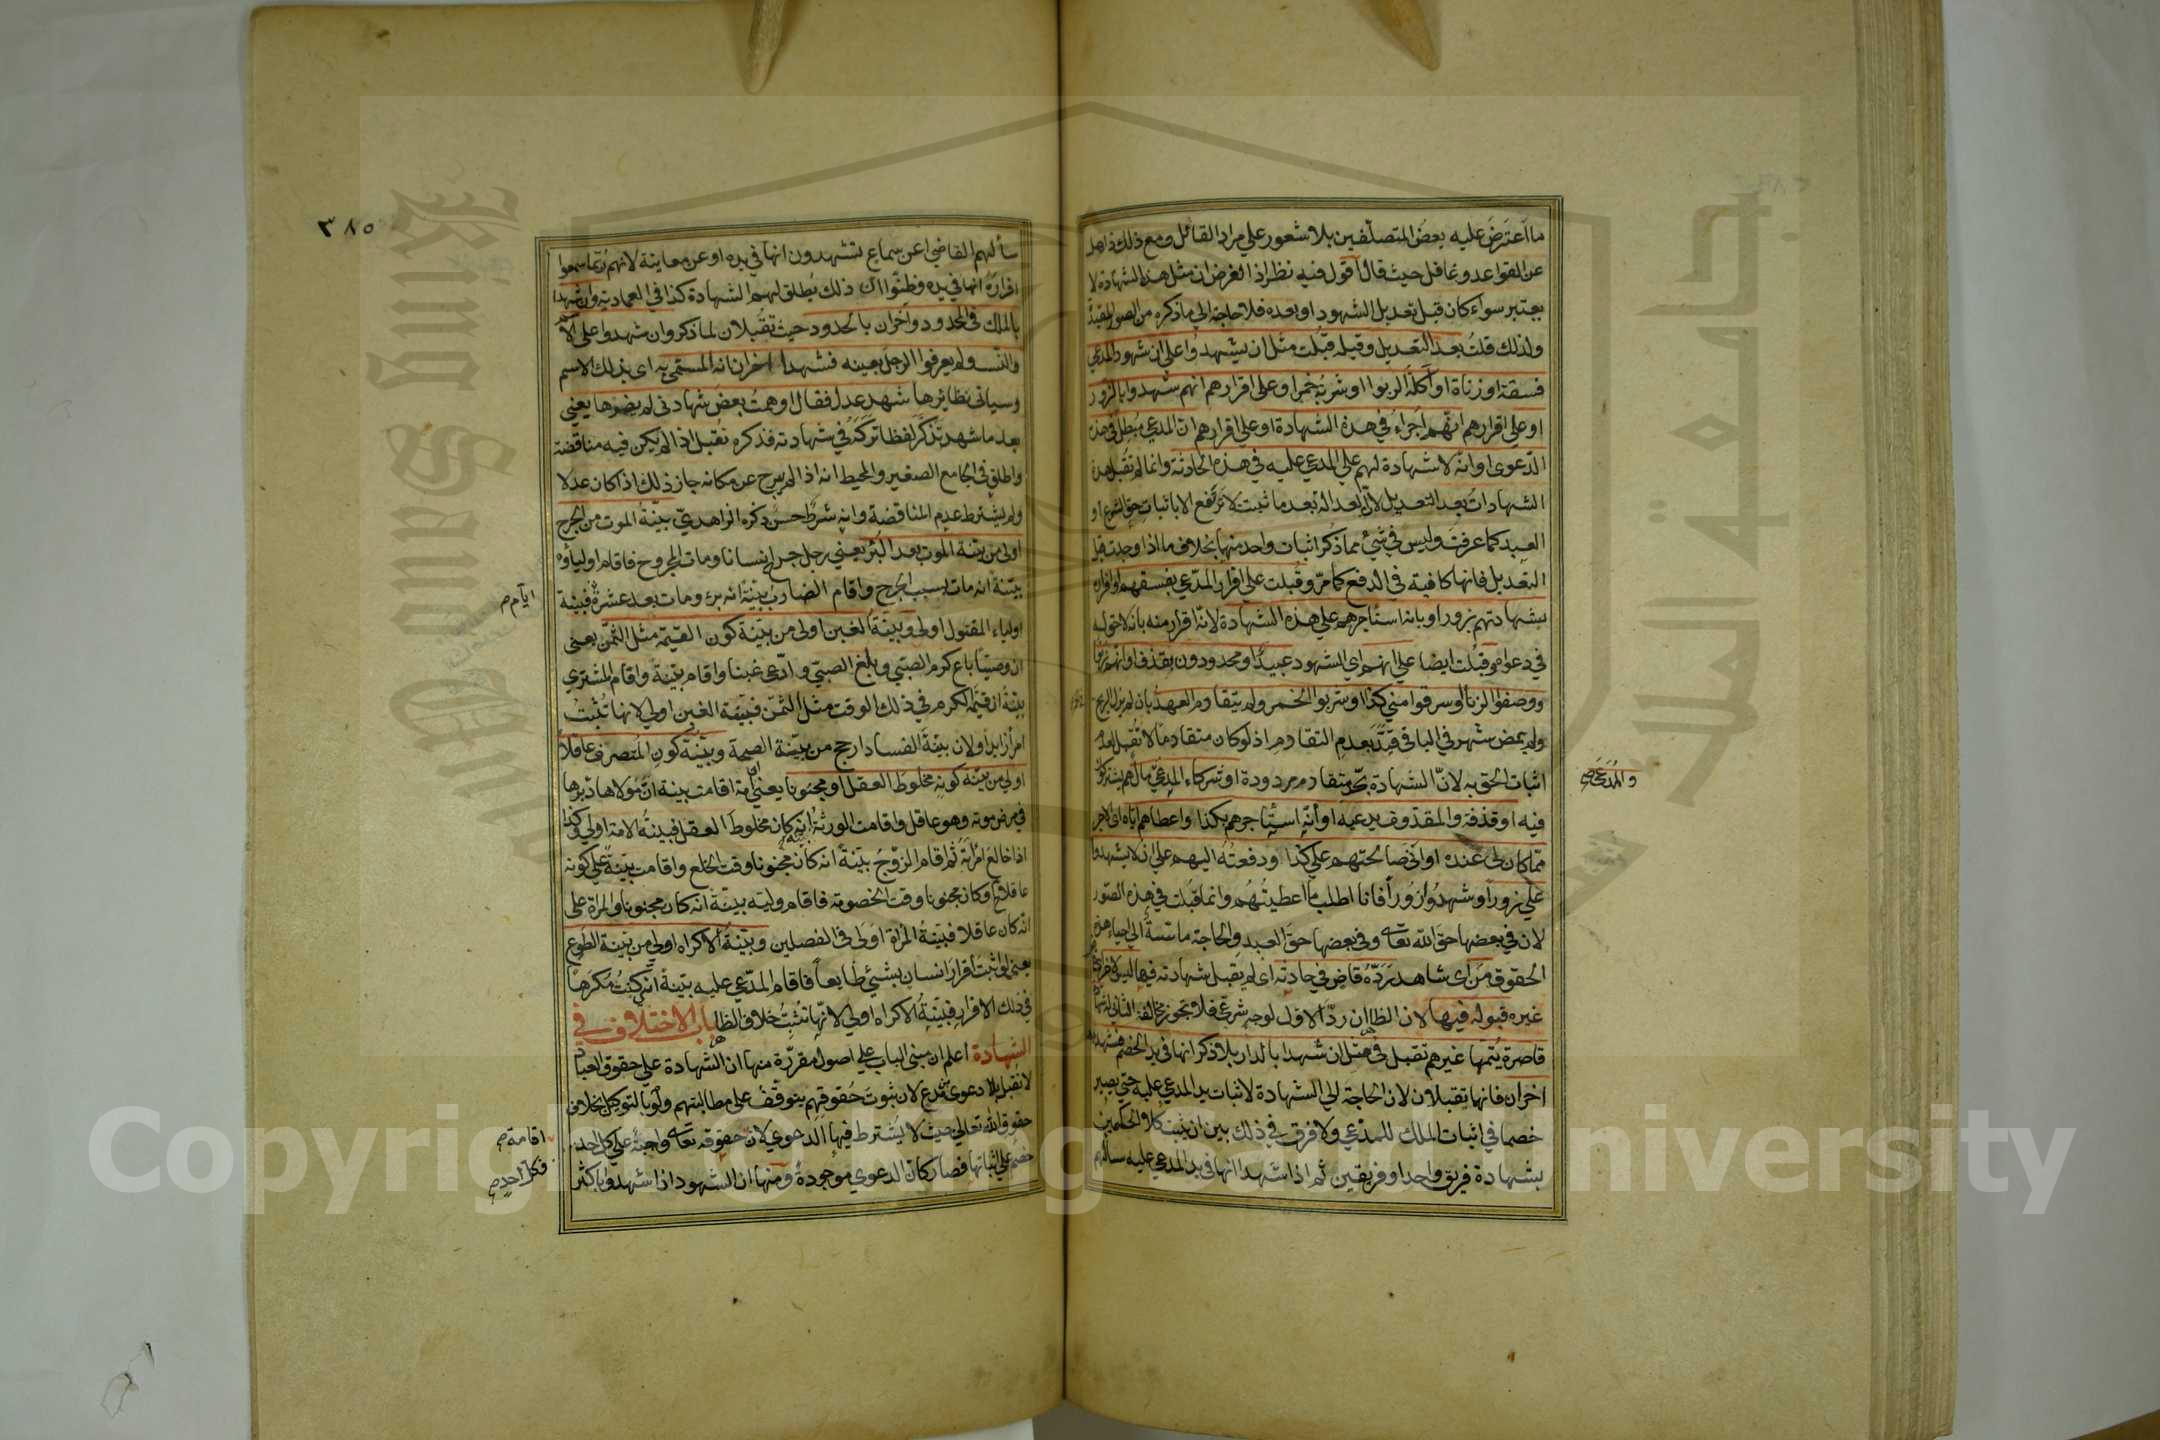 ما اعترض عليه بعض المتصلفين بلا شعور على مراد القائل ومع ذلك ذاهل
عن القواعد وغافل حيث قال اقول فيه نظر اذ الغرض ان مثل هذه الشهادة لا
يعتبر سواء كان قبل تعديل الشهود او بعده فلا حاجة الى ما ذكره من الصور المقيدة
ولذلك قلت بعد التعديل وقبله قبلت مثل ان يشهدوا على ان شهود المدعي
فسقة او زناة او اكلة الربوا او شربة خمر او على اقرارهم انهم شهدوا بالزور
او على اقرارهم انهم اجراء في هذه الشهادة او على اقرارهم ان المدعي مبطل في هذه
الدعوى او انه لا شهادة لهم على المدعي عليه في هذه الحادثة وانما لم تقبل هذه
الشهادات بعد التعديل لان العدالة بعد ما ثبتت لا ترتفع الا باثبات حق الشرع او
العبد كما عرفت وليس في شئ مما ذكر اثبات واحد منها بخلاف ما اذا وجدت قبل
التعديل فانها كافية في الدفع كما مر وقبلت على اقرار المدعي بفسقهم او اقراره
بشهادتهم بزور او بانه استاجرهم على هذه الشهادة لانه اقرار منه بانه لا حق له
في دعواه وقبلت ايضا على انهم اي الشهود عبيد او محدودون بقذف او انهم زنوا
ووصفوا الزنا او سرقوا مني كذا او شربوا الخمر ولم يتقادم العهد بان لم يزل الريح
ولم يمض شهر في الباقي قيد بعدم التقادم اذ لو كان متقادما لا تقبل لعدم
اثبات الحق به لان الشهادة بحد متقادم مردودة او شركاء المدعي
والمدعى صح
فيه او قذفة والمقذوف يدعيه او انه استاجرهم بكذا واعطاهم اياه اي الاجر
مما كان لي عنده او اني صالحتهم على كذا ودفعته اليهم على ان لا يشهدوا
علي زورا وشهدوا زورا فانا اطلب ما اعطيتهم وانما قبلت في هذه الصور
لان في بعضها حق الله تعالى وفي بعضها حق العبد والحاجة ماسة الى احياء هذه
الحقوق من اى شاهد رده قاض في حادثة اى لم يقبل شهادته فيها ليس لاخر اى قاض
غيره قبوله فيها لان الظاهر ان رد الاول لوجه شرعي فلا تجوز مخالفة الثاني شهادة
قاصرة يتمها غيرهم تقبل في مثل ان شهدا بالدار بلا ذكر انها في يد الخصم فشهد به
اخران فانها تقبلان لان الحاجة الى الشهادة لاثبات يد المدعي عليه حتى يصير
خصما في اثبات الملك للمدعي ولا فرق في ذلك بين ان يثبت كلا الحكمين
بشهادة فريق واحد او فريقين ثم اذا شهدا انها في يد المدعي عليه سألهم
٣٨٥
سألهم القاضي اعن سماع تشهدون انها في يده او عن معاينة لانهم ربما سمعوا
اقراره انها في يده وظنوا ان ذلك يطلق لهم الشهادة كذا في العمادية وان شهدا
بالملك في المحدود واخران بالحدود حيث تقبلان لما ذكر وان شهدوا على الاسم
والنسب ولم يعرفوا الرجل بعينه فشهدا اخران انه المسمى به اى بذلك الاسم
وسياتي نظائرها شهد عدل فقال اوهمت بعض شهادتي لم يضرها يعني
بعد ما شهد تذكر لفظا تركه في شهادته فذكره تقبل اذا لم يكن فيه مناقضة
واطلق في الجامع الصغير والمحيط انه اذا لم يبرح عن مكانه جاز ذلك اذا كان عدلا
ولم يشترط عدم المناقضة وانه شرط حسن ذكره الزاهدي بينة الموت من الجرح
اولى من بينة الموت بعد البرء يعني رجل جرح انسانا ومات المجروح فاقام اولياؤه
بينة انه مات بسبب الجرح واقام الضارب بينة انه برء ومات بعد عشرة فبينة
ايام صح
اولياء المقتول اولى وبينة الغبن اولى من بينة كون القيمة مثل الثمن يعني
ان وصيا باع كرم الصبي وبلغ الصبي وادعى غبنا واقام بينة واقام المشتري
بينة ان قيمة الكرم في ذلك الوقت مثل الثمن فبينة الغبن اولى لانها تثبت
امرا زايدا ولان بينة الفساد ارجح من بينة الصحة وبينة كون المتصرف عاقلا
اولى من بينة كونه مخلوط العقل او مجنونا يعني امة اقامت بينة ان مولاها دبرها
في مرض موته وهو عاقل واقامت الورثة انه كان مخلوط العقل فبينة الامة اولى وكذا
اذا خالع امرأته ثم اقام الزوج بينة انه كان مجنونا وقت الخلع واقامت بينة على كونه
عاقلا او كان مجنونا وقت الخصومة فاقام وليه بينة انه كان مجنونا والمرأة على
انه كان عاقلا فبينة المرأة اولى في الفصلين وبينة الاكراه اولى من بينة الطوع
يعني لو اثبت اقرار انسان بشئ طايعا فاقام المدعي عليه بينة اني كنت مكرها
في ذلك الاقرار فبينة الاكراه اولى لانها تثبت خلاف الظاهر باب الاختلاف في
الشهادة اعلم ان مبنى الباب على اصول مقررة منها ان الشهادة على حقوق العباد
لا تقبل بلا دعوى لان ثبوت حقوقهم يتوقف على مطالبتهم ولو بالتوكيل بخلاف
حقوق الله تعالى حيث لا يشترط فيها الدعوى لان حقوقه تعالى واجبة على كل احد
اقامة صح
فكل احد صح
خصم في اثباتها فصار كان الدعوى موجودة ومنها ان الشهود اذا شهدوا باكثر
Copyright © King Saud University